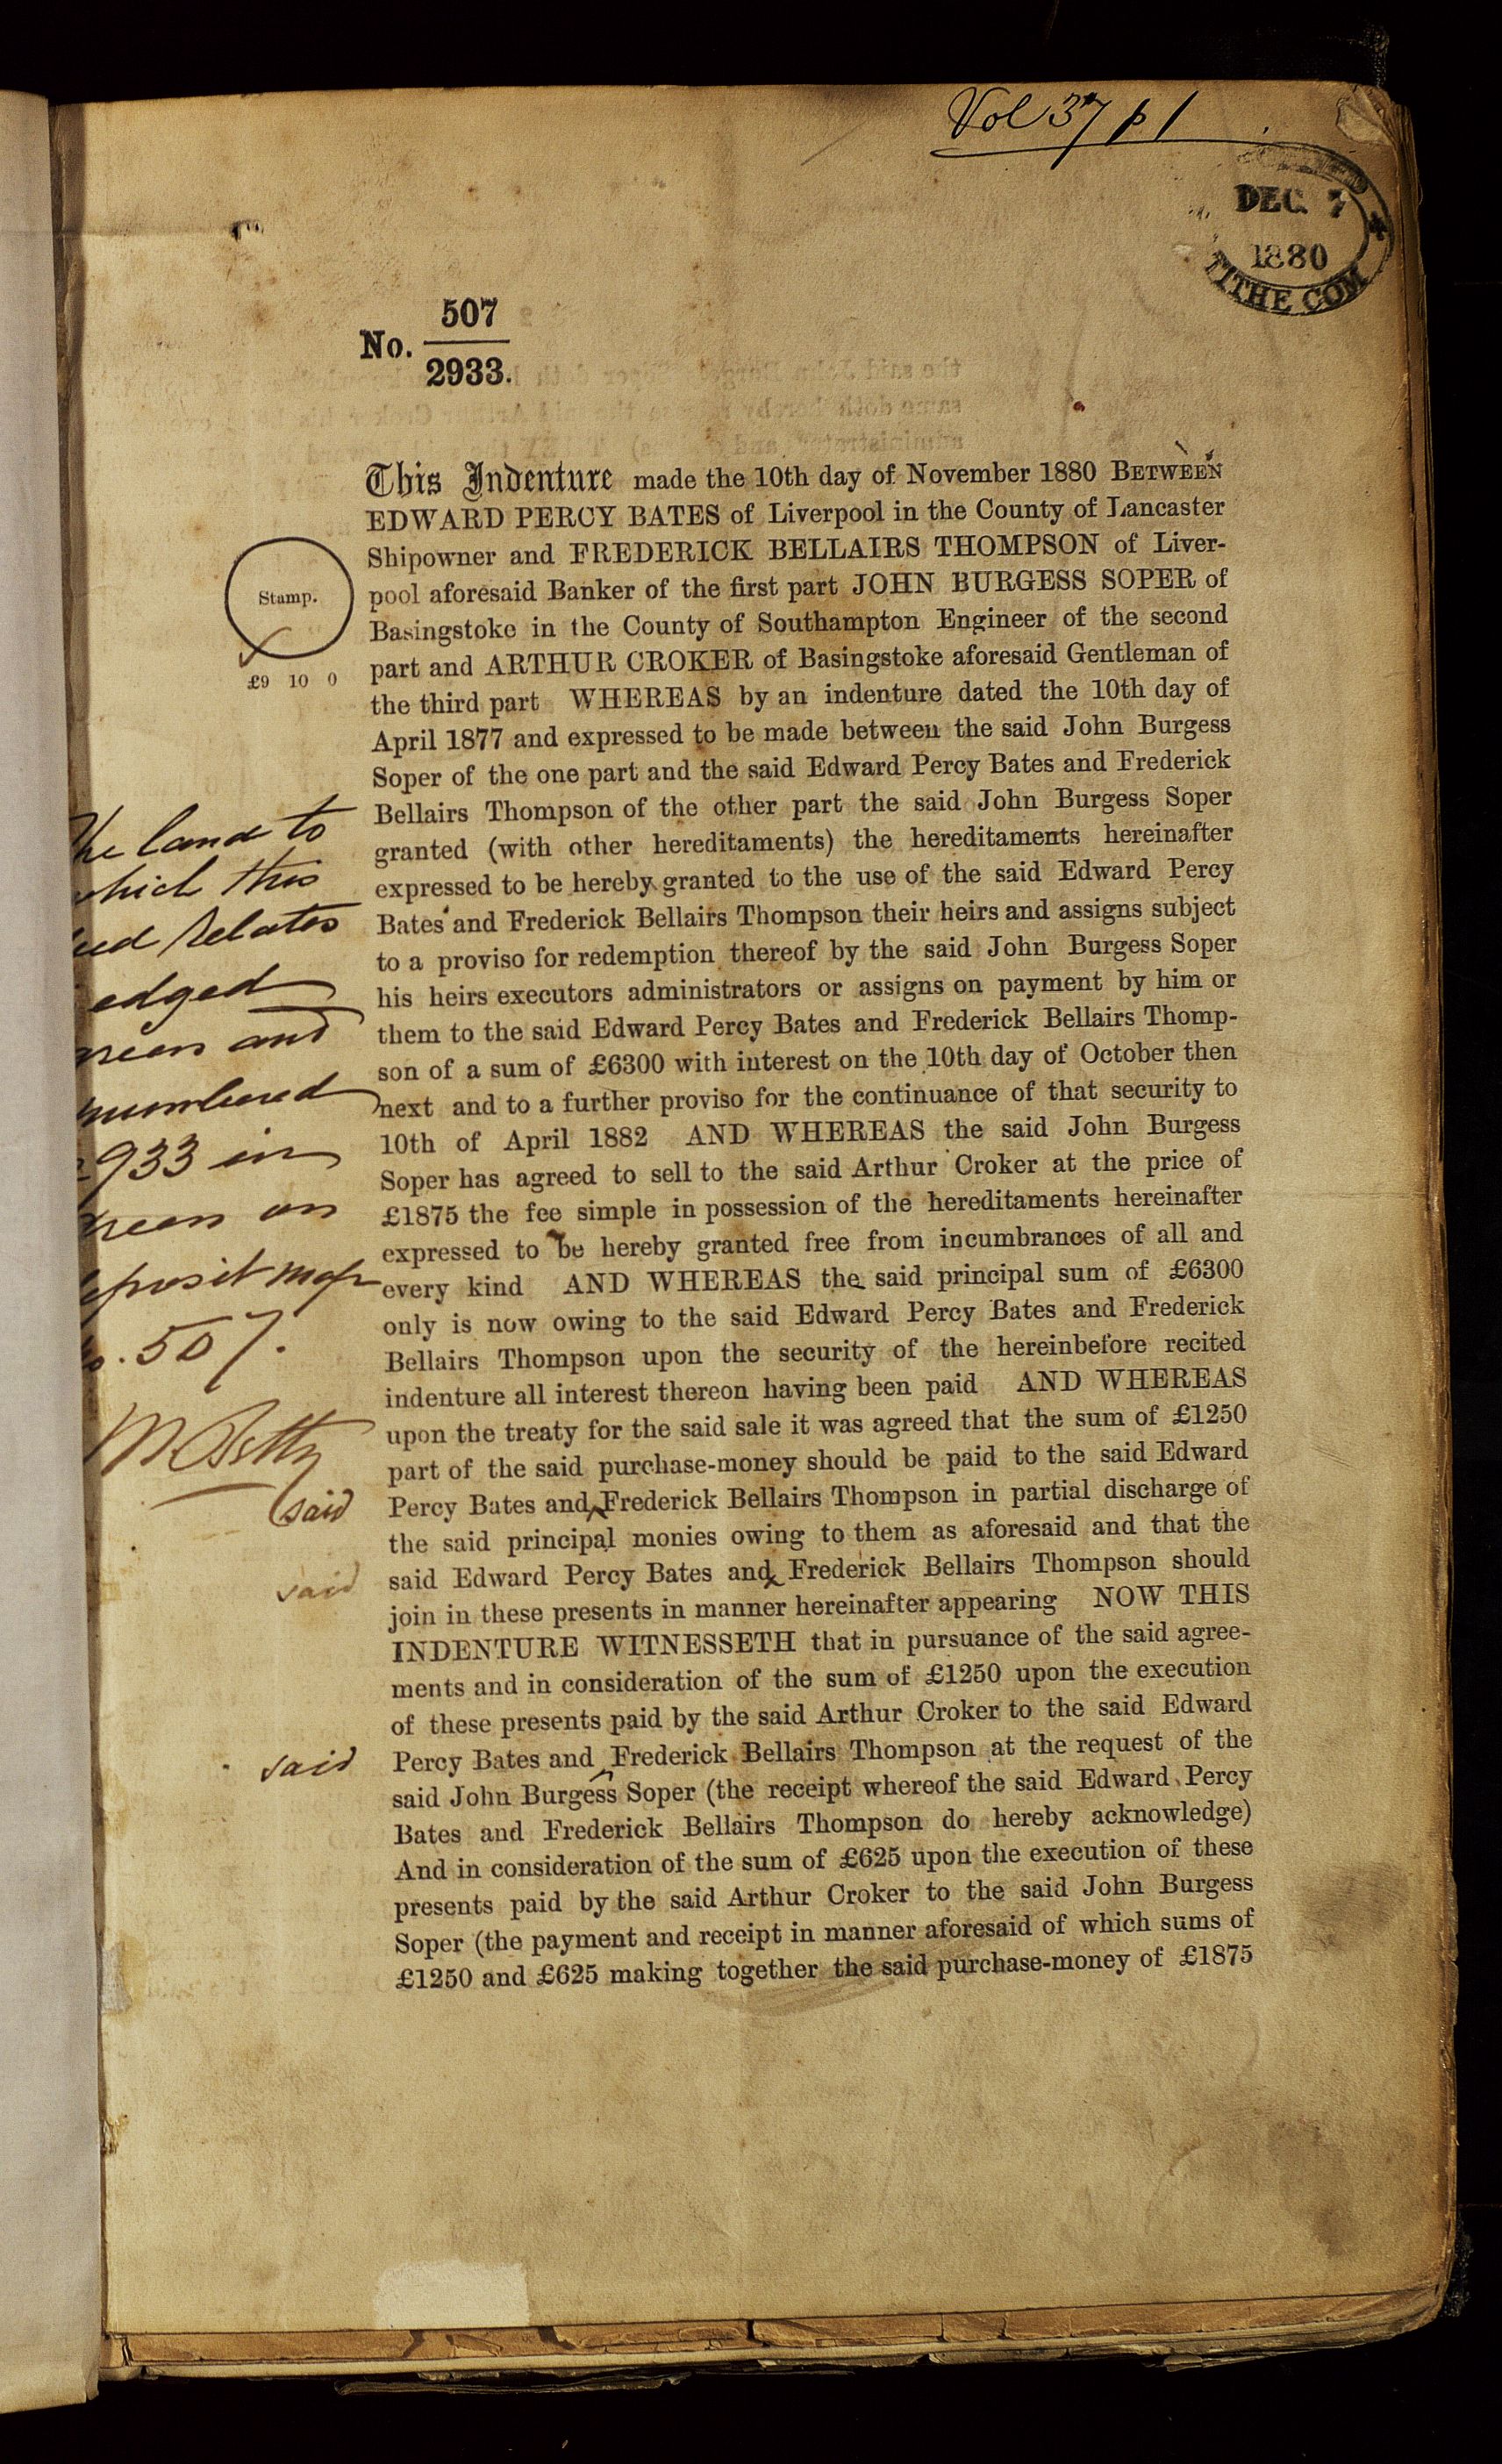 Vol 37 p 1
DEC. 7
1880
TITHE COM
No. 507
2933.
This Indenture made the 10th day of November 1880 BETWEEN
EDWARD PERCY BATES of Liverpool in the County of Lancaster
Shipowner and FREDERICK BELLAIRS THOMPSON of Liver-
pool aforesaid Banker of the first part JOHN BURGESS SOPER of
Basingstoke in the County of Southampton Engineer of the second
part and ARTHUR CROKER of Basingstoke aforesaid Gentleman of
the third part WHEREAS by an indenture dated the 10th day of
April 1877 and expressed to be made between the said John Burgess
Soper of the one part and the said Edward Percy Bates and Frederick
Bellairs Thompson of the other part the said John Burgess Soper
granted (with other hereditaments) the hereditaments hereinafter
expressed to be hereby granted to the use of the said Edward Percy
Bates and Frederick Bellairs Thompson their heirs and assigns subject
to a proviso for redemption thereof by the said John Burgess Soper
his heirs executors administrators or assigns on payment by him or
them to the said Edward Percy Bates and Frederick Bellairs Thomp-
son of a sum of £6300 with interest on the 10th day of October then
next and to a further proviso for the continuance of that security to
10th of April 1882 AND WHEREAS the said John Burgess
Soper has agreed to sell to the said Arthur Croker at the price of
£1875 the fee simple in possession of the hereditaments hereinafter
expressed to be hereby granted free from incumbrances of all and
every kind AND WHEREAS the said principal sum of £6300
only is now owing to the said Edward Percy Bates and Frederick
Bellairs Thompson upon the security of the hereinbefore recited
indenture all interest thereon having been paid AND WHEREAS
upon the treaty for the said sale it was agreed that the sum of £1250
part of the said purchase-money should be paid to the said Edward
Percy Bates and Frederick Bellairs Thompson in partial discharge of
the said principal monies owing to them as aforesaid and that the
said Edward Percy Bates and Frederick Bellairs Thompson should
join in these presents in manner hereinafter appearing NOW THIS
INDENTURE WITNESSETH that in pursuance of the said agree-
ments and in consideration of the sum of £1250 upon the execution
of these presents paid by the said Arthur Croker to the said Edward
Percy Bates and Frederick Bellairs Thompson at the request of the
said John Burgess Soper (the receipt whereof the said Edward Percy
Bates and Frederick Bellairs Thompson do hereby acknowledge)
And in consideration of the sum of £625 upon the execution of these
presents paid by the said Arthur Croker to the said John Burgess
Soper (the payment and receipt in manner aforesaid of which sums of
£1250 and £625 making together the said purchase-money of £1875
Stamp.
£9 10 0
land to
this
relates
edged
and
numbered
933 in
on
map
507.
said
said
said